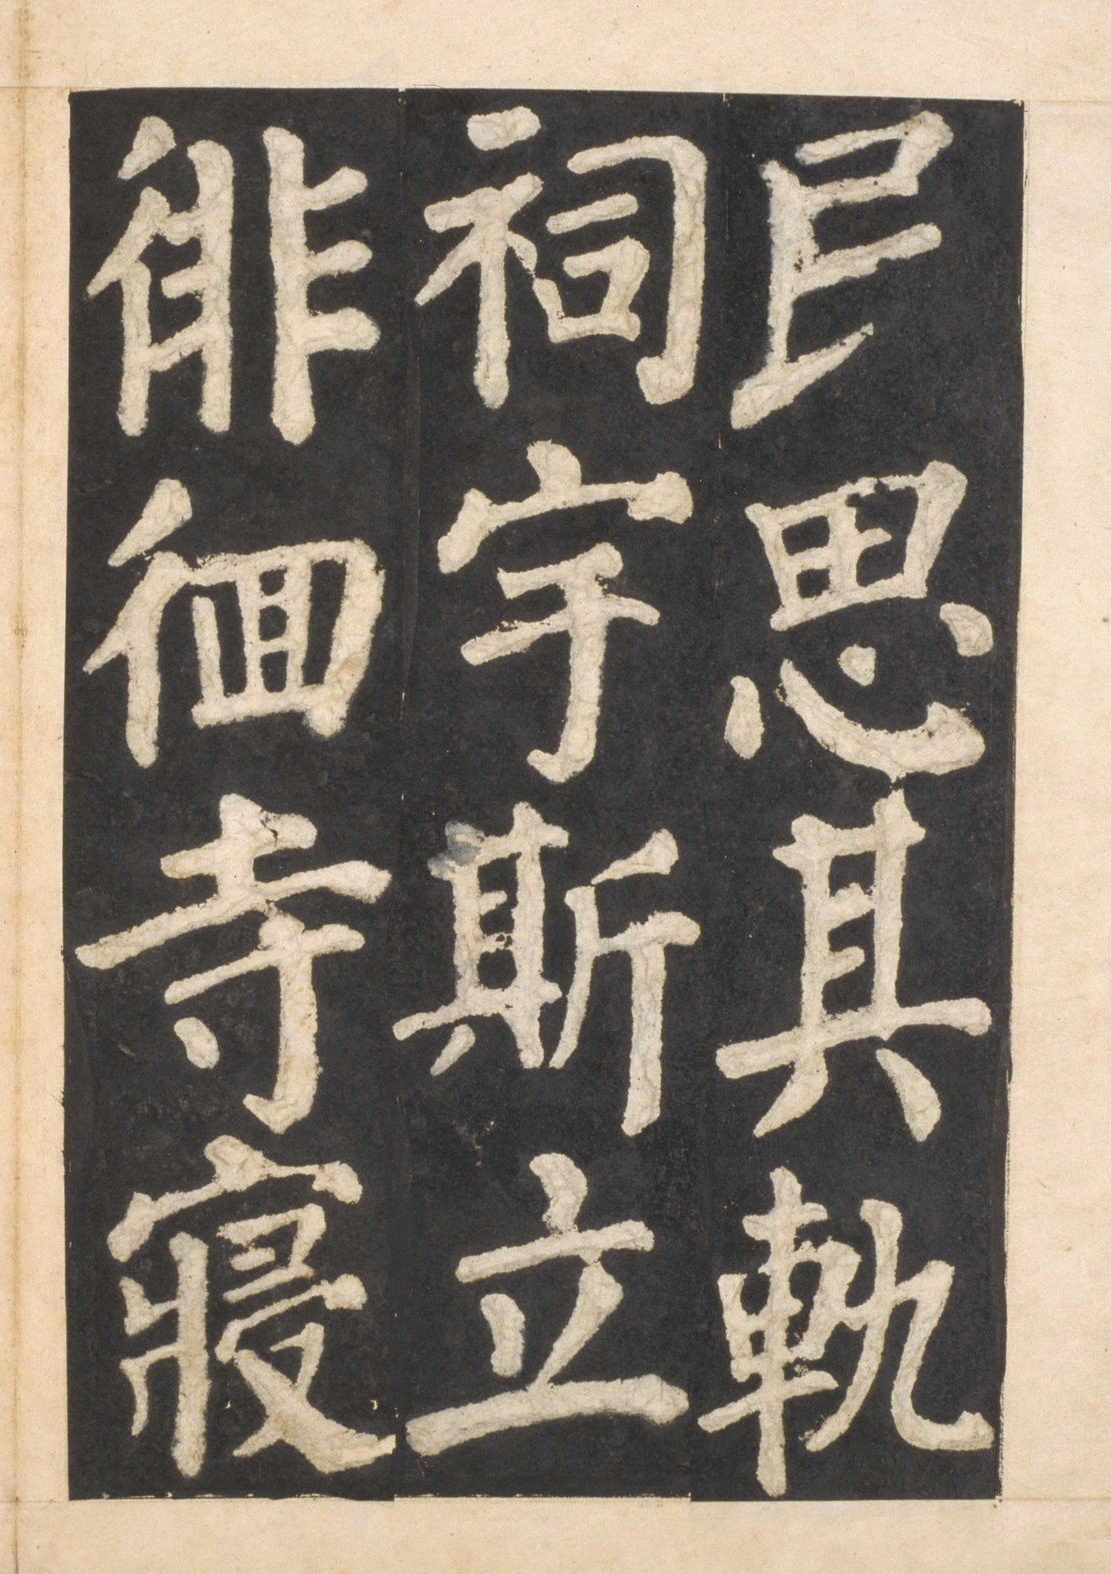 民思其軌
祠宇斯立
徘徊寺寢